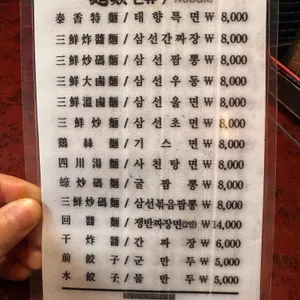 麵類 / Noodle
泰香特麵 / 태향특면 ₩ 8,000
三鮮炸醬麵 / 삼선간짜장 ₩ 8,000
三鮮炒碼麵 / 삼선짬뽕 ₩ 8,000
三鮮大鹵麵 / 삼선우동 ₩ 8,000
三鮮溫鹵麵 / 삼선울면 ₩ 8,000
三鮮炒麵 / 삼선초면 ₩ 8,000
鷄絲麵 / 기스면 ₩ 8,000
四川湯麵 / 사천탕면 ₩ 8,000
蠔炒碼麵 / 굴짬뽕 ₩ 8,000
三鮮炒碼麵 / 삼선볶음짬뽕 ₩ 8,000
回醬麵 / 쟁반짜장면(2인) ₩ 14,000
干炸醬 / 간짜장 ₩ 6,000
煎餃子 / 군만두 ₩ 5,000
水餃子 / 물만두 ₩ 5,000